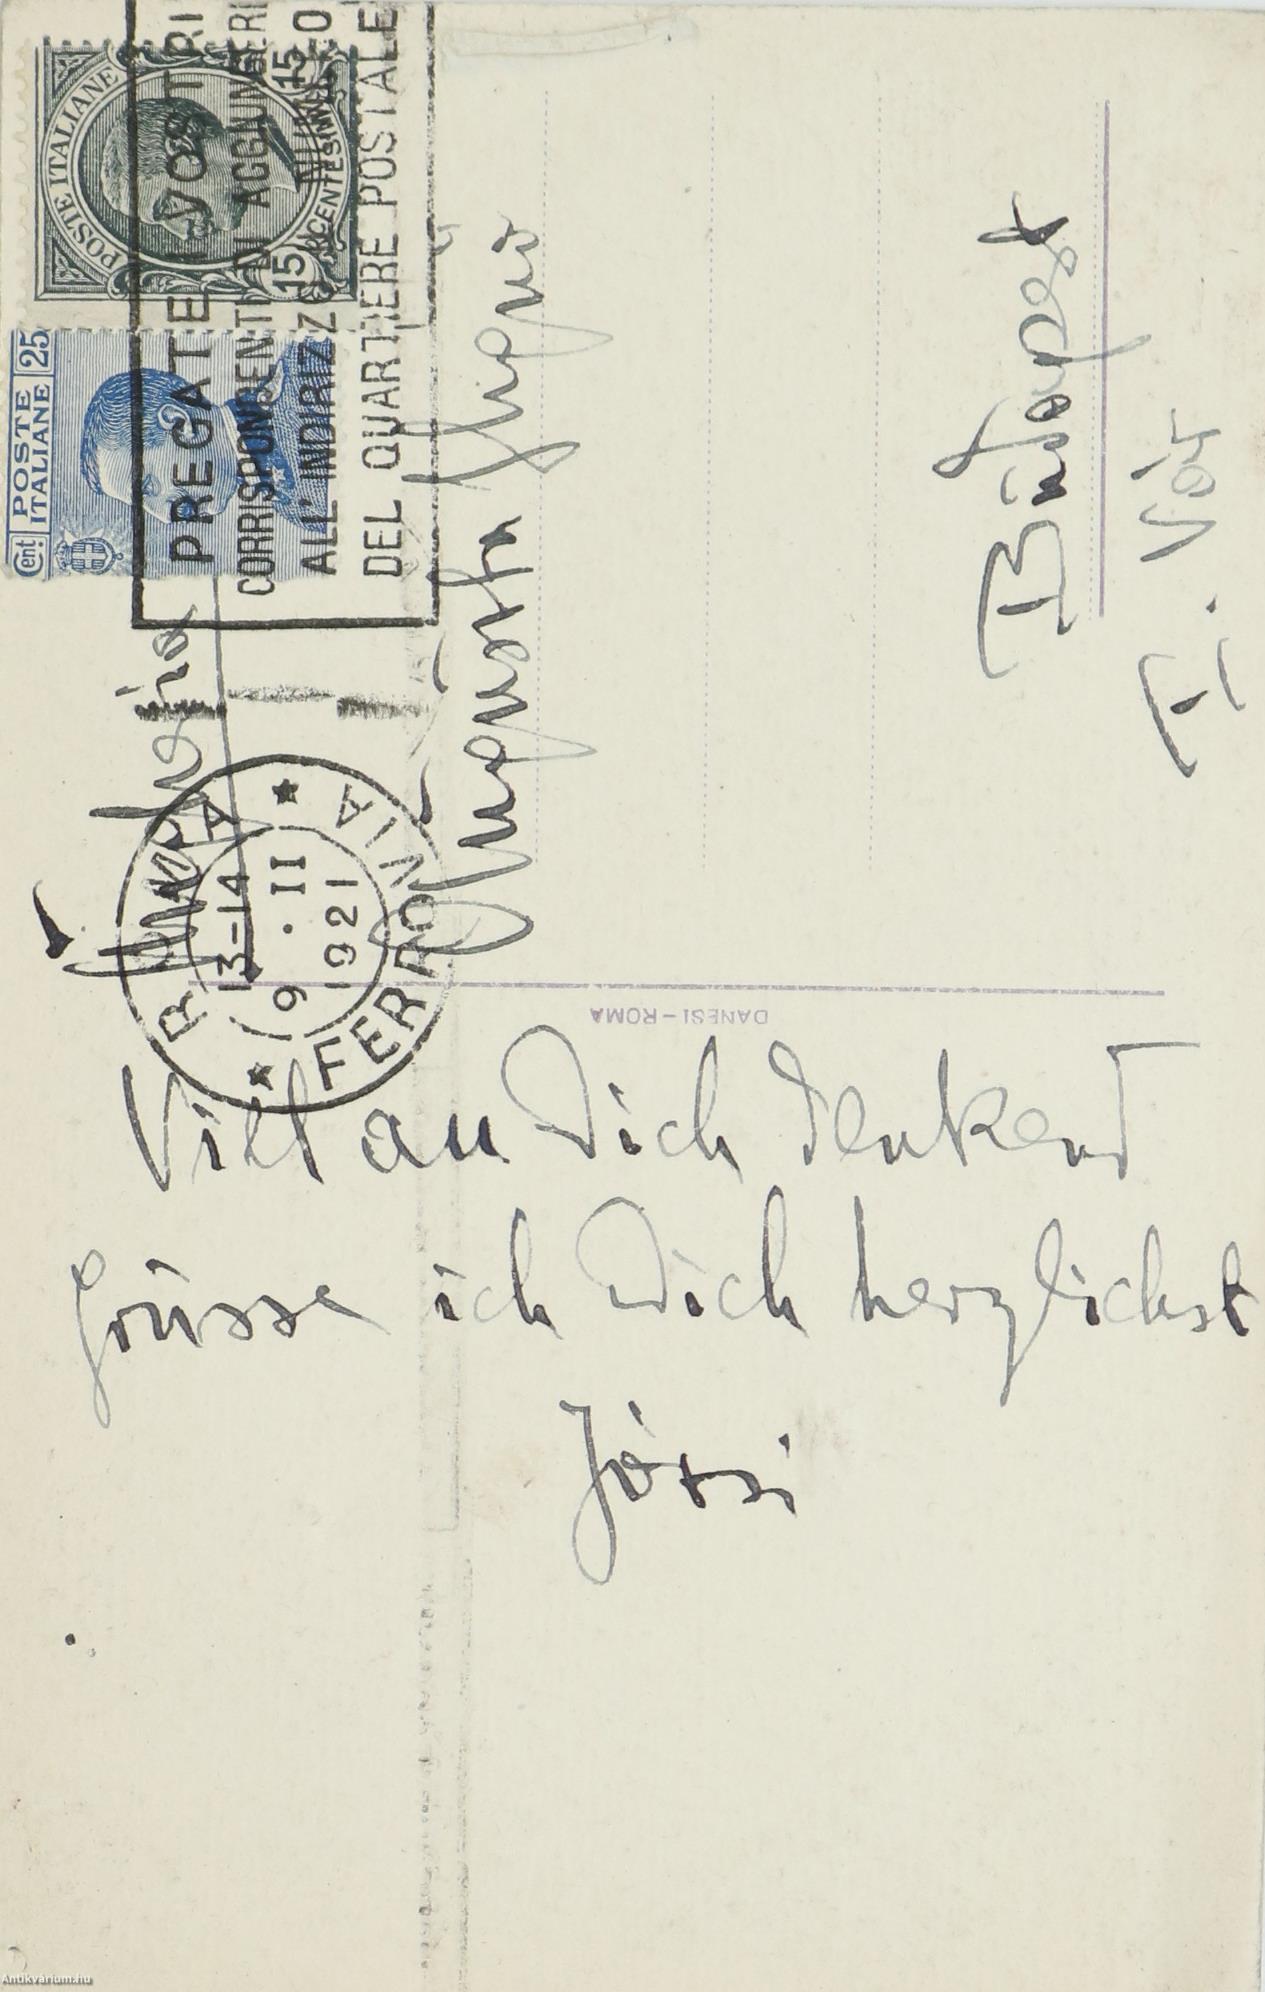 POSTE ITALIANE
15 15
CENTESIMI
Cent. POSTE ITALIANE 25
PREGATE I VOSTRI
CORRISPONDENTI DI AGGIUNGERE
ALL'INDIRIZZO
DEL QUARTIERE POSTALE
ROMA
13-14
9 • II
1921
FERROVIA
Augusta
Budapest
I. Vár
DANESI-ROMA
Viel an Dich denkend
Grüsse ich Dich herzlichst
Józsi
Antikvarium.hu